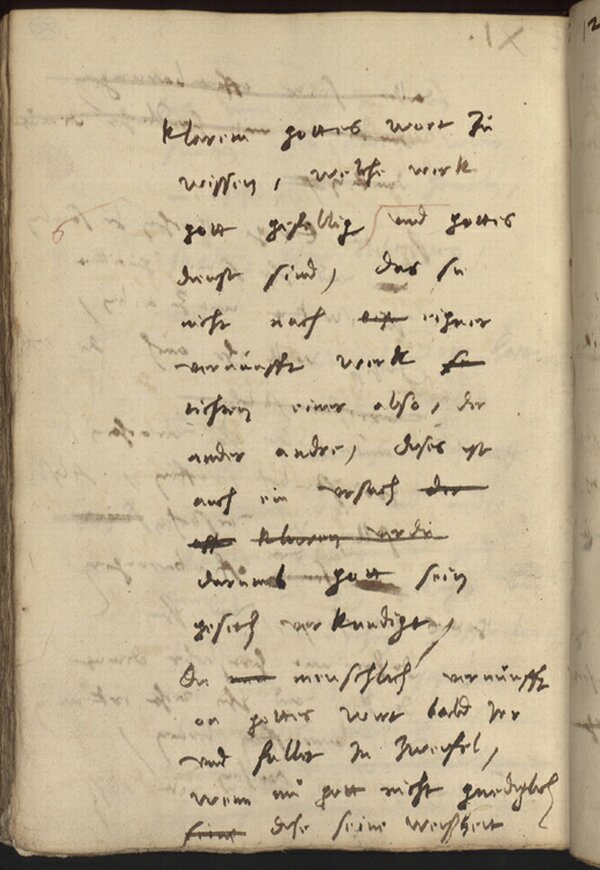 klarem gottes wort zu
wissen, welche werk
gott gefallig und gottes
dienst sind, das sie
nicht nach eigner
vernunfft werk
tichten einer also, der
ander andre, dises ist
auch ein ursach der
klaren
darumb gott sein
gesetz verkundiget,
die menschlich vernunfft
on gottes wort bald irr
und fallet in zweifel,
wenn nu gott nicht gnediglich
seine dise seine weisheit